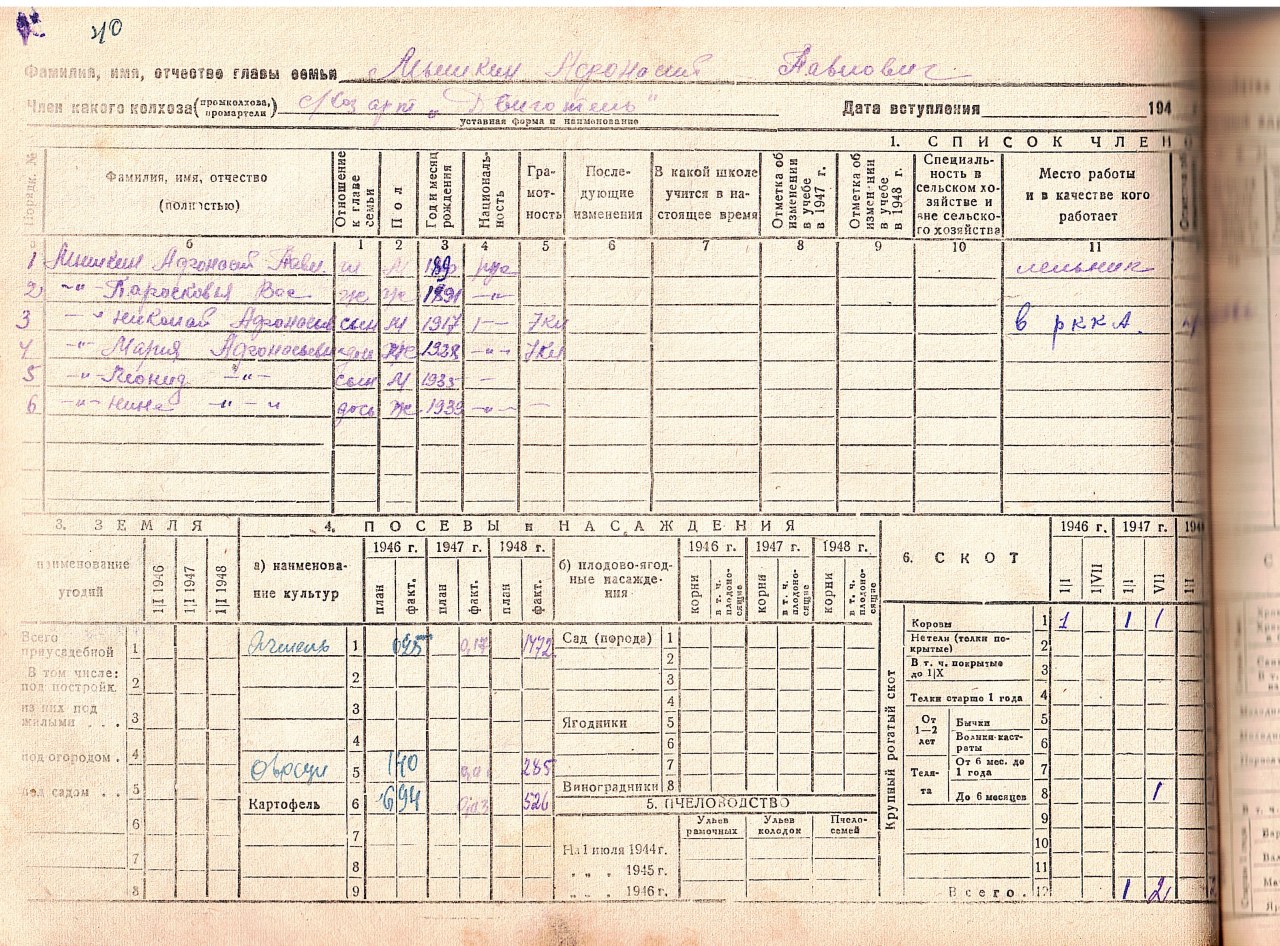 40
Фамилия, имя, отчество главы семьи Мышкин Афонасий Павлович
Член какого колхоза (промколхоза, промартели) с/хоз арт „Двигатель" Дата вступления 194
уставная форма и наименование
1. СПИСОК ЧЛЕНО
Порядк. №
Фамилия, имя, отчество (полностью)
Отношение к главе семьи
Пол
Год и месяц рождения
Националь-ность
Гра-мот-ность
После-дующие изменения
В какой школе учится в на-стоящее время
Отметка об изменении в учебе в 1947 г.
Отметка об измен-нии в учебе в 1948 г.
Специаль-ность в сельском хо-зяйстве и вне сельско-го хозяйства
Место работы и в качестве кого работает
б 1 2 3 4 5 6 7 8 9 10 11
1 Мышкин Афонасий Павл М рус мельник
2 -"- Паросковья Вас ж 1891 -"-
3 -"- Николай Афонасьев сын М 1917 7кл в РККА.
4 -"- Мария Афонасьевн ж -"- 7кл
5 -"- Леонид -"- сын М 1935 -
6 -"- Нина -"- дочь ж 1939 -"-
3. ЗЕМЛЯ
наименование угодий
1|I 1946
1|I 1947
1|I 1948
Всего приусадебной 1
В том числе: под постройк. 2
из них под жилыми . . . 3
под огородом . 4
под садом . . 5
6
7
8
4. ПОСЕВЫ и НАСАЖДЕНИЯ
а) наименова-ние культур
1946 г. 1947 г. 1948 г.
план факт. план факт. план факт.
Ячмень 1 0,17 1472
2
3
4
Овощи 5 140 285
Картофель 6 694 526
7
8
9
б) плодово-ягод-ные насажде-ния
1946 г. 1947 г. 1948 г.
корни в т. ч. плодоно-сящие корни в т. ч. плодоно-сящие корни в т. ч. плодоно-сящие
Сад (порода) 1
2
3
4
Ягодники 5
6
7
Виноградники 8
5. ПЧЕЛОВОДСТВО
Ульев рамочных
Ульев колодок
Пчело-семей
На 1 июля 1944 г.
„ „ „ 1945 г.
„ „ „ 1946 г.
6. СКОТ
1946 г. 1947 г. 194
1|I 1|VII 1|I VII 1|I
Крупный рогатый скот
Коровы 1 1 1 1
Нетели (телки по-крытые) 2
В т. ч. покрытые до 1|X 3
Телки старше 1 года 4
От 1—2 лет
Бычки 5
Волики-каст-раты 6
Теля-та
От 6 мес. до 1 года 7
До 6 месяцев 8 1
9
10
11
Всего. 12 1 2